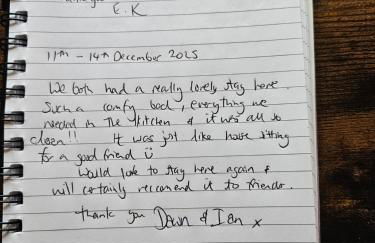 E.K
11th - 14th December 2025
We both had a really lovely stay here.
Such a comfy bed, everything we
needed in the kitchen & it was all so
clean!! It was just like house sitting
for a good friend ü
Would love to stay here again &
will certainly reccomend it to friends.
Thank you Dawn & Ian x